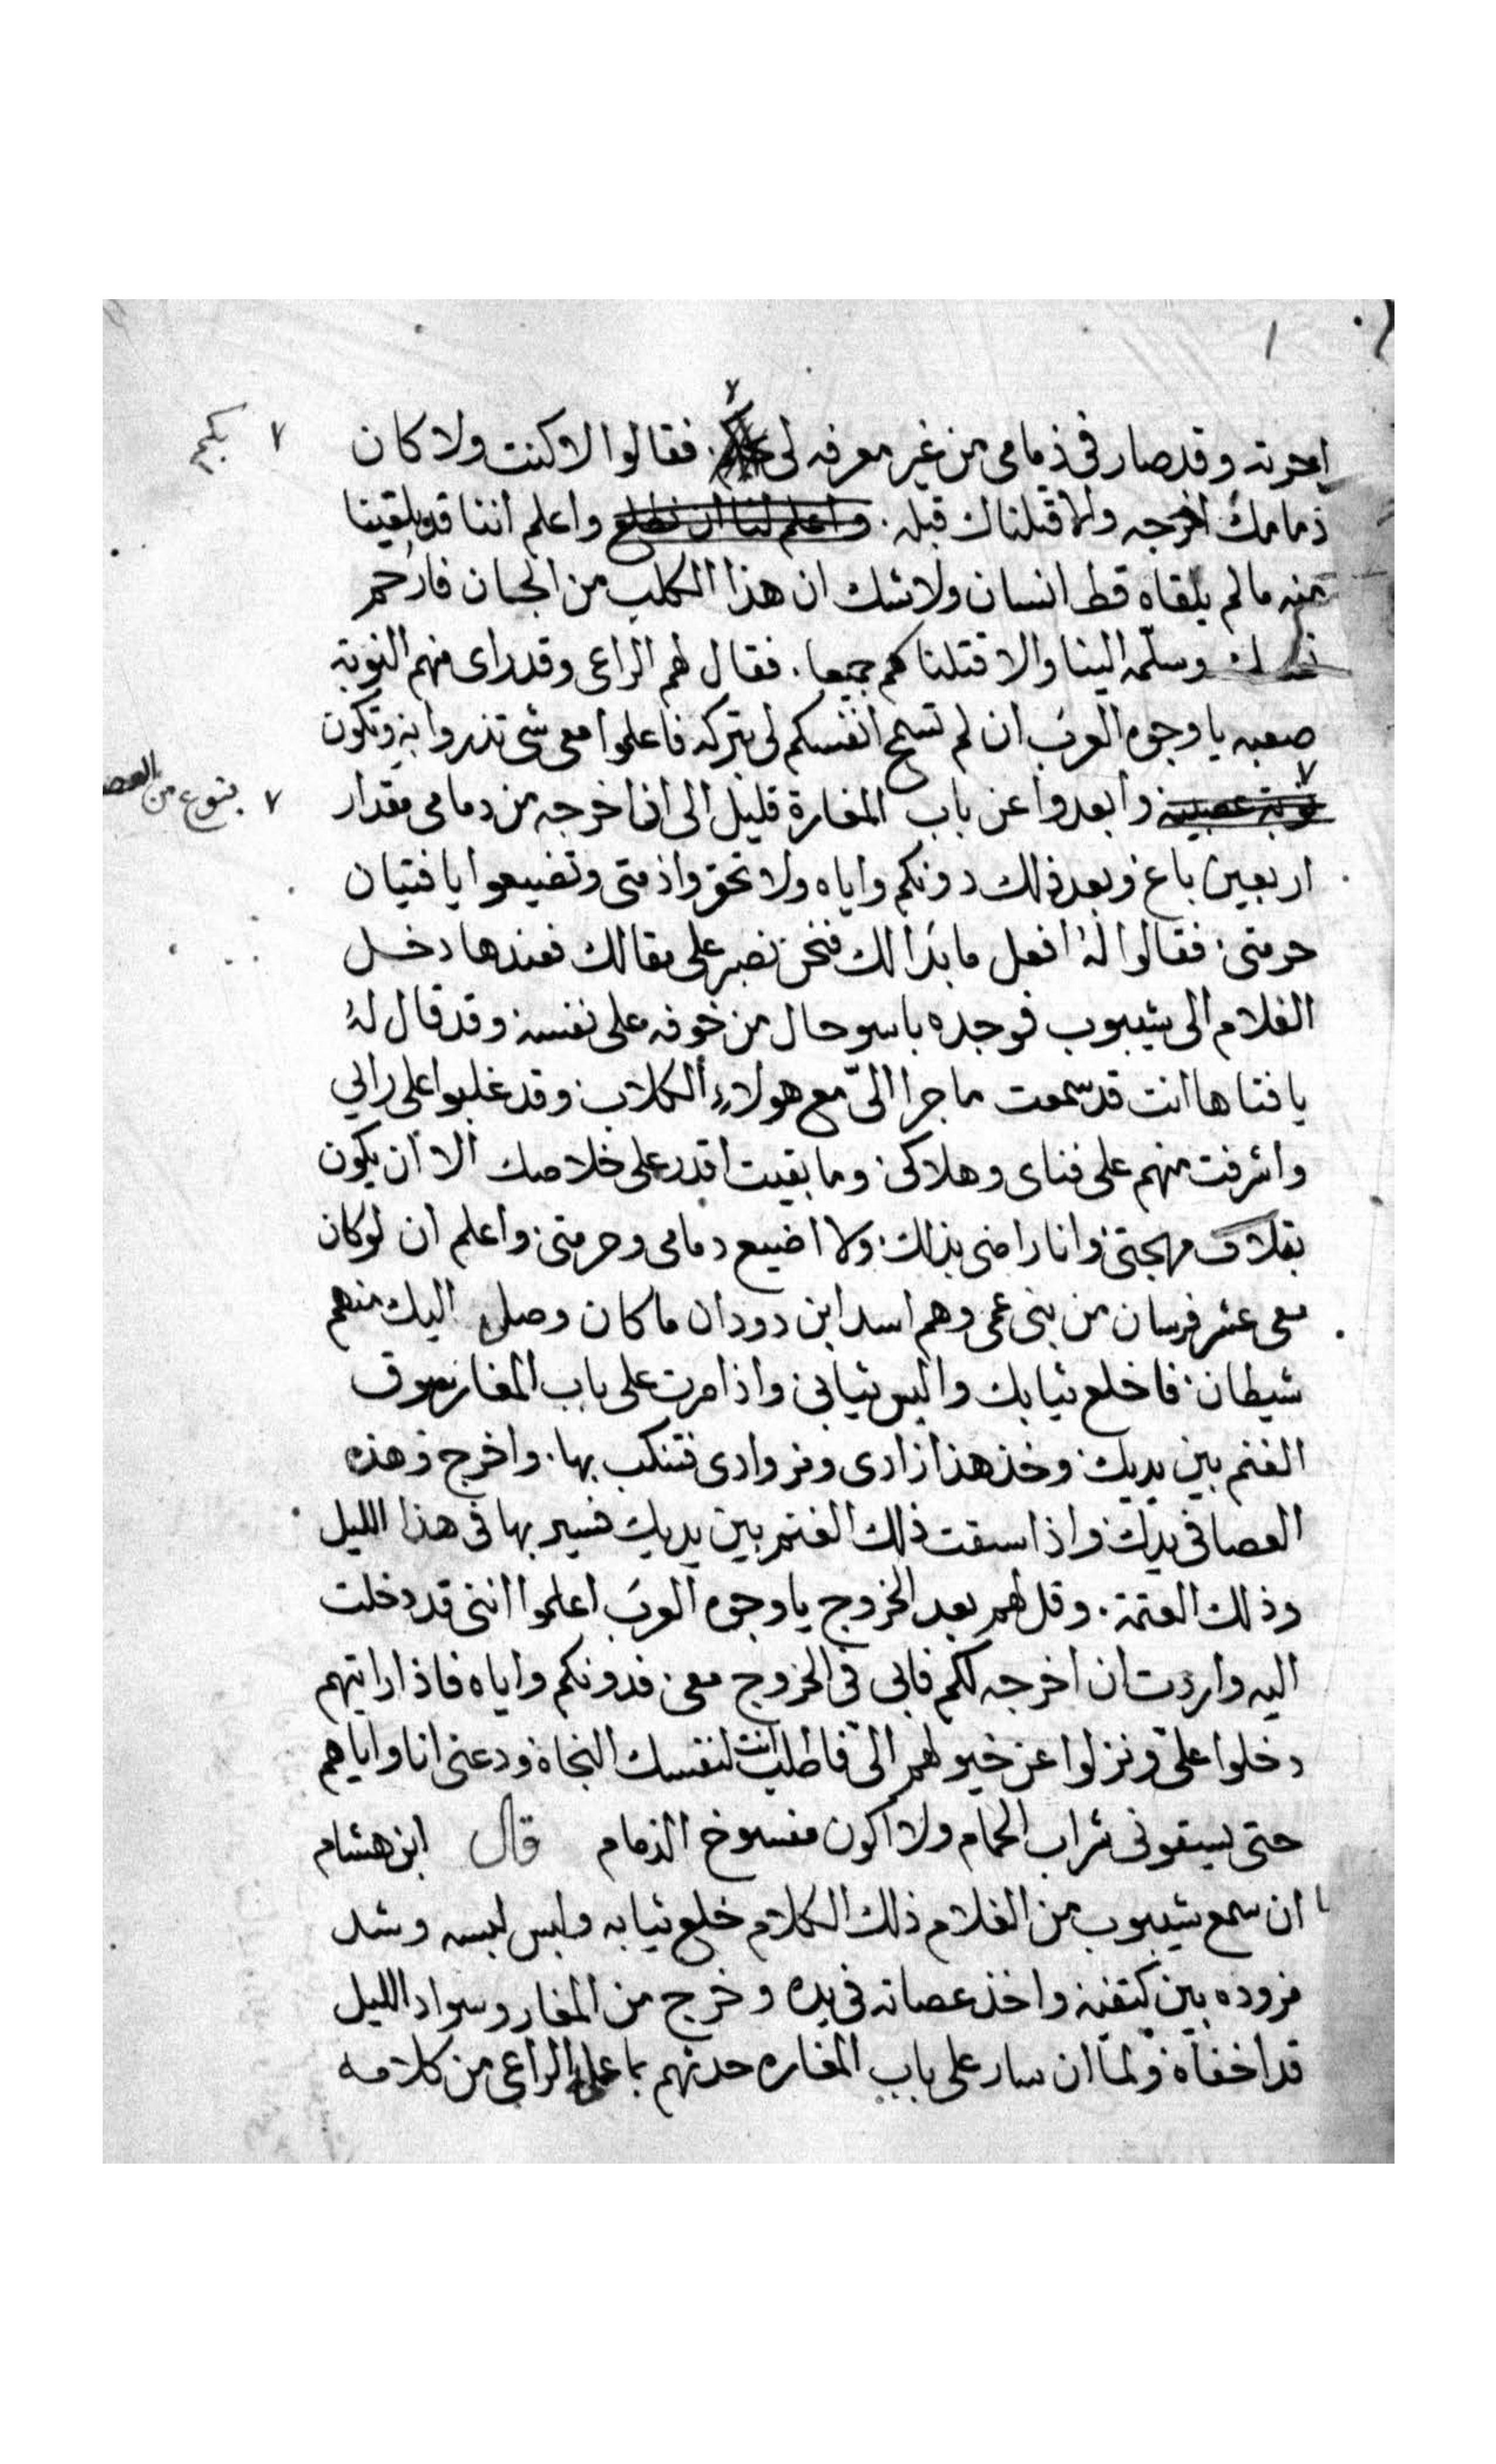 اجرته وقد صار في ذمامي من غير معرفه لي بكم. فقالوا لا كنت ولا كان
ذمامك اخرجه والا قتلناك قبله. واعلم اننا قد لقينا
منه مالم يلقاه قط انسان ولاشك ان هذا الكلب من الجان فارحم
نفسك وسلمه الينا والا قتلناكم جميعا. فقال لهم الراعي وقد راى منهم النوبة
صعبه يا وجوه العرب ان لم تسمح انفسكم لي بتركه فاعلموا معي شي تذروا به وتكون
بنوع من العصـ وابعدوا عن باب المغارة قليل الى ان اخرجه من دمامي مقدار
اربعين باع وبعد ذلك دونكم واياه ولا تحقروا ذمتي وتضيعوا يا فتيان
حرمتي فقالوا له افعل ما بدا لك فنحن نصبر على مقالك فعندها دخل
الغلام الى شيبوب فوجده باسو حال من خوفه على نفسه وقد قال له
يا فتا ها انت قد سمعت ما جرا اليّ مع هولاء الكلاب وقد غلبوا على رايي
واشرفت منهم على فناي وهلاكي وما بقيت اقدر على خلاصك الا ان يكون
بتلاف مهجتي وانا راضي بذلك ولا اضيع دمامي وحرمتي واعلم ان لو كان
معي عشر فرسان من بني عمي وهم اسد ابن دودان ما كان وصل اليك منهم
شيطان فاخلع ثيابك والبس ثيابي واذا مرت على باب المغار سوق
الغنم بين يديك وخذ هذا زادي ومزوادي فتنكب بها. واخرج وهذه
العصا في يدك واذا سقت ذلك الغنم بين يديك فسير بها في هذا الليل
وذلك العتمة. وقل لهم بعد الخروج يا وجوه العرب اعلموا انني قد دخلت
اليه واردت ان اخرجه لكم فابى في الخروج معي فدونكم واياه فاذا رايتهم
دخلوا عليّ ونزلوا عن خيولهم اليّ فاطلب انت لنفسك النجاة ودعني انا واياهم
حتى يسقوني شراب الحمام ولا اكون مفسوخ الذمام قال ابن هشام
ان سمع شيبوب من الغلام ذلك الكلام خلع ثيابه ولبس لبسه وشد
مزوده بين كتفيه واخذ عصاته في يده وخرج من المغار وسواد الليل
قد اخفاه ولما ان سار على باب المغاره حدثهم بما علمه الراعي من كلامه